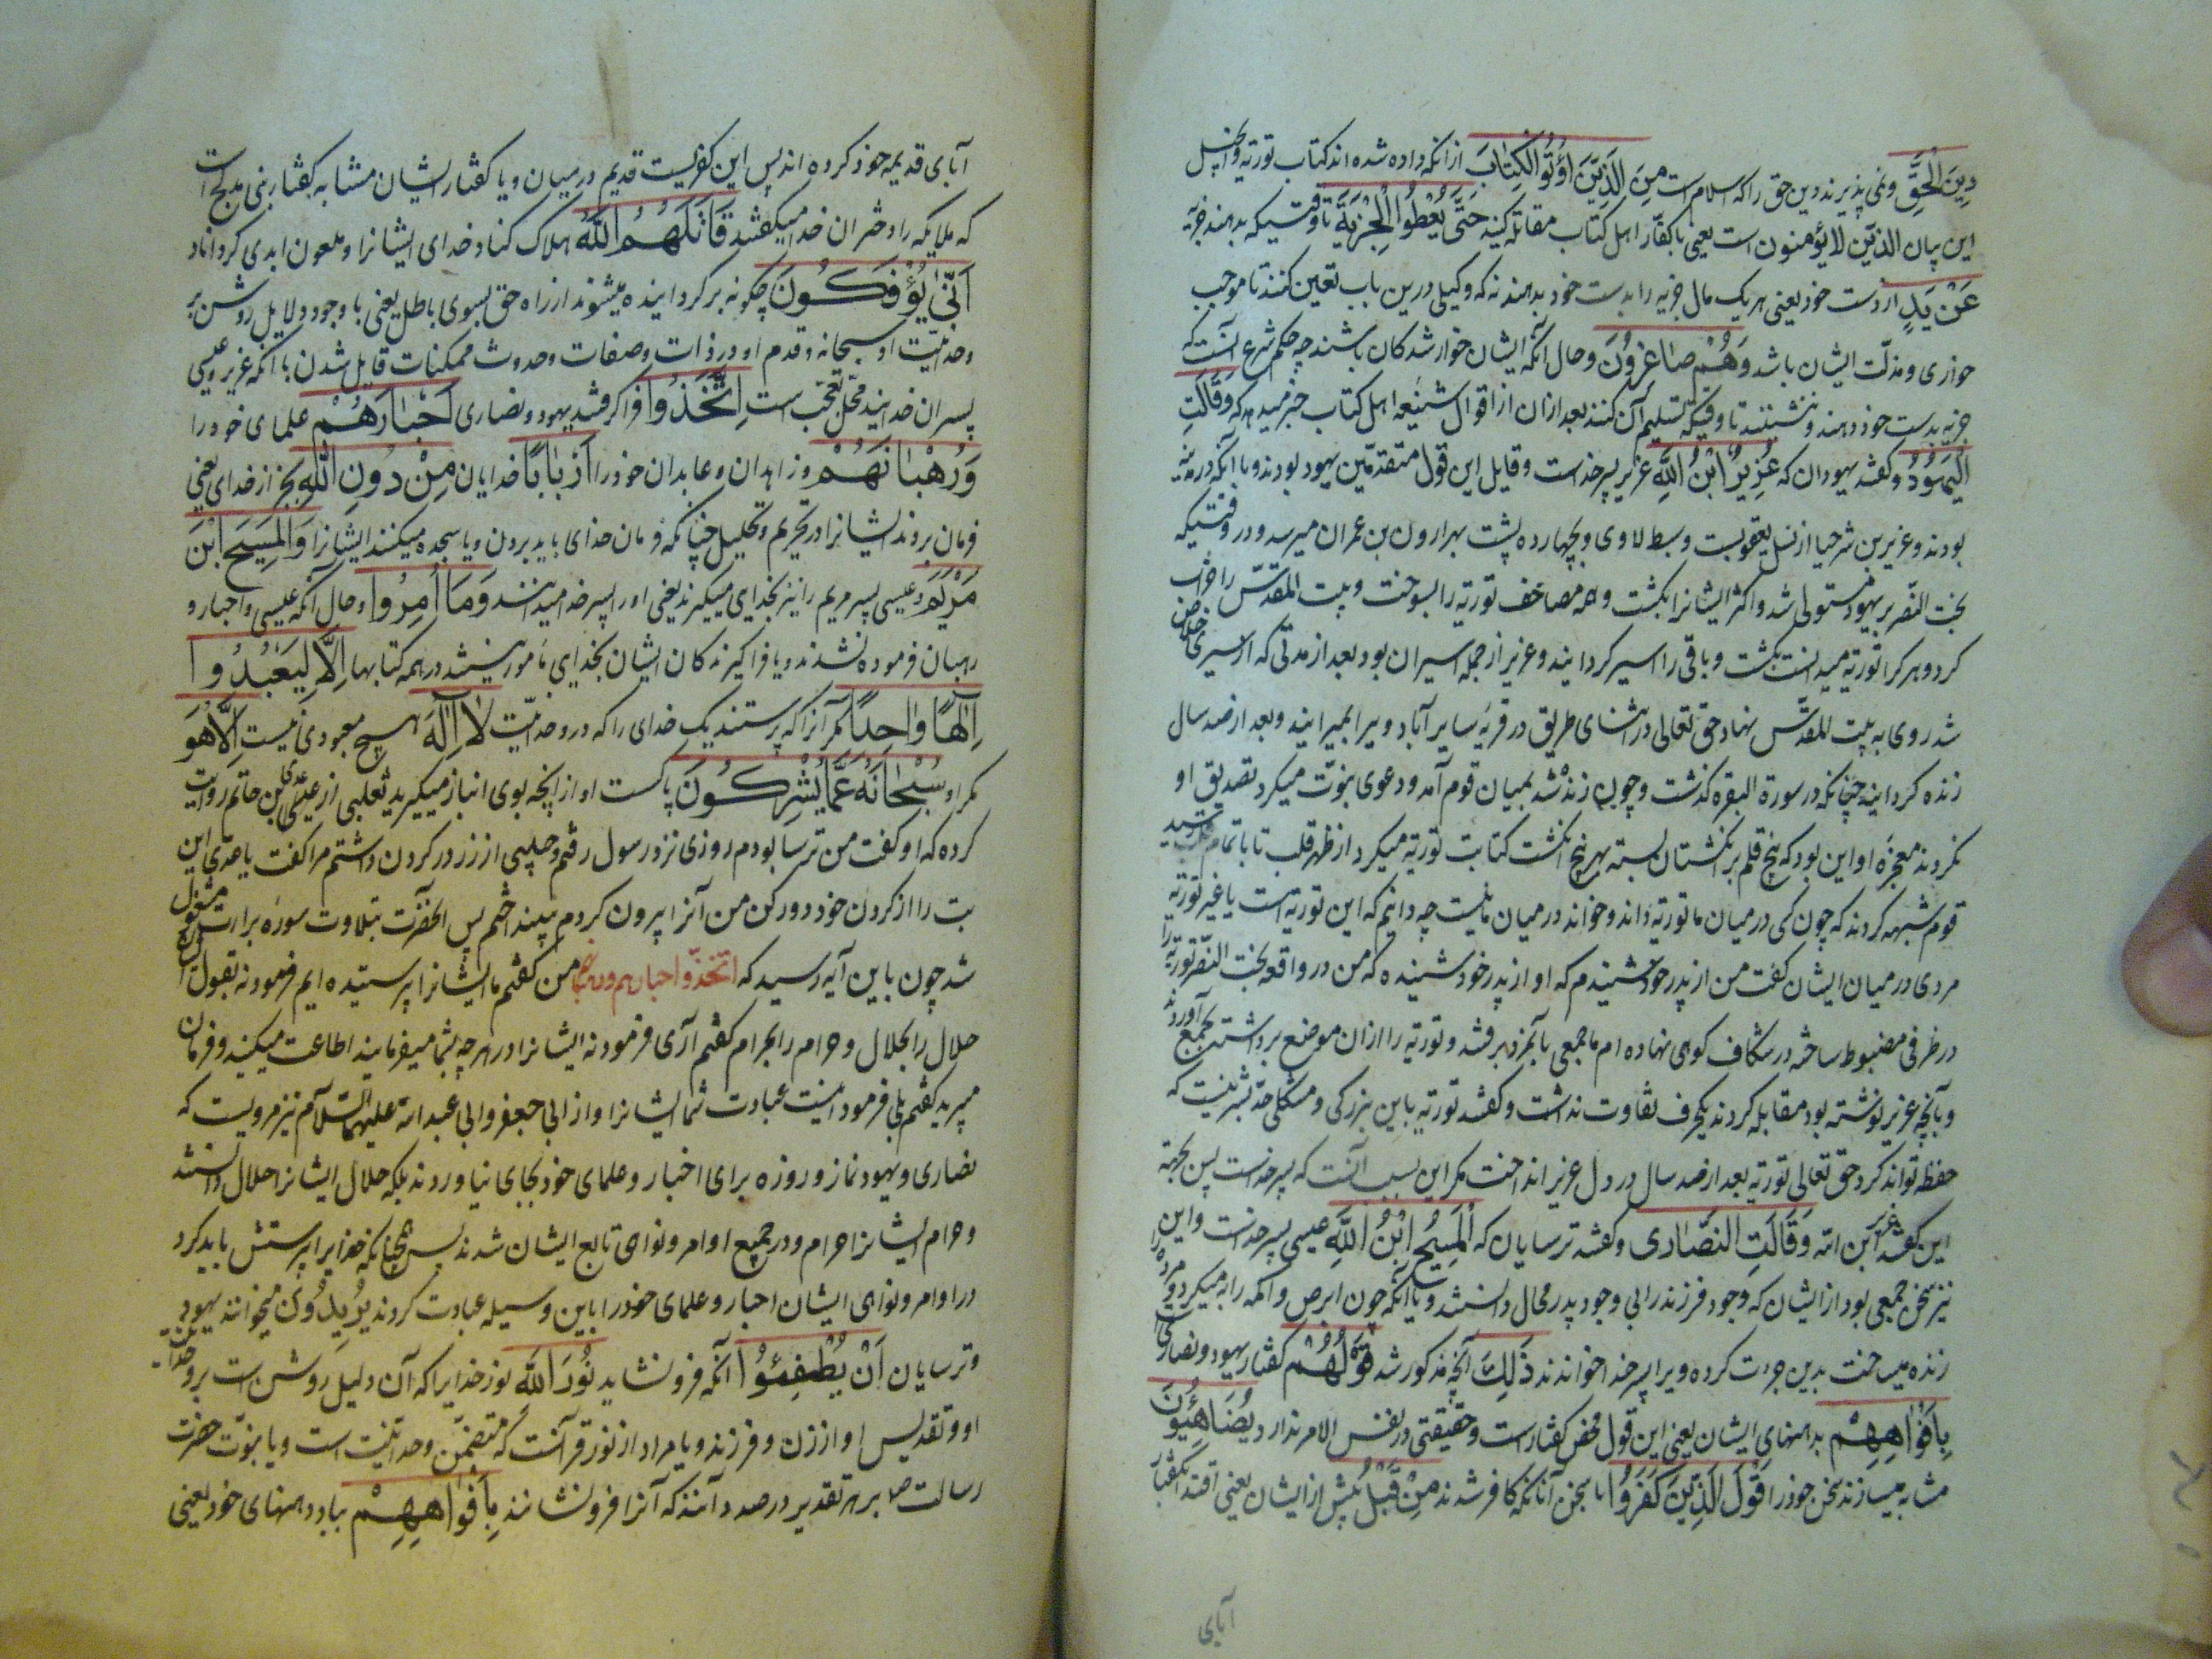 دِينَ الْحَقِّ ونمی پذیرند دین حق را که اسلامست مِنَ الَّذِينَ اُوتُوا الْكِتَابَ از آنکه داده شده اند کتاب توریة وانجیل
این بیان الذین لا یؤمنون است یعنی با کفار اهل کتاب مقاتله کنید حَتّٰى يُعْطُوا الْجِزْيَةَ تا وقتیکه بدهند جزیه
عَنْ يَدٍ از دست خود یعنی هر یک مال جزیه را بدست خود بدهند نه که وکیلی درین باب تعین کنند تا موجب
خواری و مذلت ایشان باشد وَهُمْ صَاغِرُونَ وحال آنکه ایشان خوار شدکان باشند چه حکم شرع آنست که
جزیه بدست خود دهند و ننشینند تا وقتیکه تسلیم آن کنند بعد ازان از اقوال شنیعه اهل کتاب خبر میدهد که وَقَالَتِ
الْيَهُودُ وکفتند یهودان که عُزَيْرٌ ابْنُ اللّٰهِ عزیر پسر خداست وقایل این قول متقدمین یهود بودند ویا آنکه در مدینه
بودند وعزیر بن شرحیا از نسل یعقوبست وسبط لاوی وبچهارده پشت بهرارون بن عمران میرسد ودر وقتیکه
بخت النصر بر یهود مستولی شد واکثر ایشانرا بکشت وهمه مصاحف توریة را بسوخت وبیت المقدس را خراب
کرد وهر کرا توریة میدانست بکشت وباقی را اسیر کردانید وعزیر از جمله اسیران بود بعد از مدتی که از اسیری خلاص
شد روی به بیت المقدس نهاد حق تعالی در اثنای طریق در قریه سایر آباد ویرا بمیرانید وبعد از صد سال
زنده کردانید چنانکه در سورة البقره کذشت وچون زنده شد بمیان قوم آمد ودعوی نبوت میکرد تصدیق او
نکردند معجزه او این بود که پنج قلم بر انکشتان بسته بهر پنج انکشت کتابت توریة میکرد از ظهر قلب تا باتمام رسید
قوم شبهه کردند که چون کسی در میان ما توریة داند وخواند در میان ما نیست چه دانیم که این توریة است یا غیر توریة
مردی در میان ایشان کفت من از پدر خود شنیدم که او از پدر خود شنیده که من در واقعه بخت النصر توریة را
در ظرفی مضبوط ساخته در شکاف کوهی نهاده ام ما جمعی با آنمرد برفتند وتوریة را ازان موضع برداشتند بجمع آوردند
وبآنچه عزیر نوشته بود مقابله کردند یکحرف تفاوت نداشت وکفتند توریة باین بزرکی ومشکلی حد بشر نیست که
حفظ تواند کرد حق تعالی توریة بعد از صد سال در دل عزیر انداخت مکر این بسبب آنست که پسر خداست پس بجهة
این کفتند عزیر ابن الله وَقَالَتِ النَّصَارَى وکفتند ترسایان که الْمَسِيحُ ابْنُ اللّٰهِ عیسی پسر خداست واین
نیز سخن جمعی بود از ایشان که وجود فرزند را بی وجود پدر محال دانستند ویا آنکه چون ابرص واکمه را به میکرد ومرده را
زنده میساخت بدین جرأت کرده ویرا پسر خدا خواندند ذٰلِكَ آنچه مذکور شد قَوْلُهُمْ کفتار یهود ونصاری
بِاَفْوَاهِهِمْ بدهنهای ایشان یعنی این قول محض کفتارست وحقیقتی در نفس الامر ندارد يُضَاهِئُونَ
مشابه میسازند سخن خود را قَوْلَ الَّذِينَ كَفَرُوا با سخن آنانکه کافر شدند مِنْ قَبْلُ پیش از ایشان یعنی اقتدا بکفتار
آبای
آبای قدیمه خود کرده اند پس این کفریست قدیم در میان ویا کفتار ایشان مشابه کفتار بنی مدلج است
که ملایکه را دختران خدا میکفتند قَاتَلَهُمُ اللّٰهُ هلاک کناد خدای ایشانرا وملعون ابدی کرداناد
اَنّٰى يُؤْفَكُونَ چکونه برکردانیده میشوند از راه حق بسوی باطل یعنی با وجود دلایل روشن بر
وحدانیت او سبحانه وقدم او در ذات وصفات وحدوث ممکنات قایل شدن با آنکه عزیر وعیسی
پسران خدایند محل تعجب است اِتَّخَذُوا فرا کرفتند یهود ونصاری اَحْبَارَهُمْ علمای خود را
وَرُهْبَانَهُمْ وزاهدان وعابدان خود را اَرْبَابًا خدایان مِنْ دُونِ اللّٰهِ بجز از خدای یعنی
فرمان بردند ایشانرا در تحریم وتحلیل چنانکه فرمان خدای باید بردن ویا سجده میکنند ایشانرا وَالْمَسِيحَ ابْنَ
مَرْيَمَ وعیسی پسر مریم را نیز بخدای میکیرند یعنی او را پسر خدا میدانند وَمَا اُمِرُوا وحال آنکه عیسی واحبار و
رهبان فرموده نشدند ویا فرا کیرنه کان ایشان بخدای مأمور نیستند در همه کتابها اِلَّا لِيَعْبُدُوا
اِلٰهًا وَاحِدًا مکر آنرا که پرستند یک خدای را که در وحدانیت لَا اِلٰهَ هیچ معبودی نیست اِلَّا هُوَ
مکر او سُبْحَانَهُ عَمَّا يُشْرِكُونَ پاکست او از آنچه بوی انباز میکیرید ثعلبی از عدی بن حاتم روایت
کرده که او کفت من ترسا بودم روزی نزد رسول رفتم وچلیپی از زر در کردن داشتم مرا کفت یا عدی این
بت را از کردن خود دور کن من آنرا بیرون کردم بینداختم پس آنحضرت بتلاوت سوره برات مشغول
شد چون باین آیه رسید که اتخذوا احبارهم ورهبانهم من کفتم ما ایشانرا نپرستیده ایم فرمود نه بقول
حلال را بحلال وحرام را بحرام کفتم آری فرمود نه ایشانرا در هر چه بشما میفرمایند اطاعت میکنید وفرمان
میبرید کفتم بلی فرمود اینست عبادت شما ایشانرا واز ابی جعفر وابی عبد الله علیهما السلام نیز مرویست که
نصاری ویهود نماز وروزه برای احبار وعلمای خود بجای نیاوردند بلکه حلال ایشانرا حلال دانستند
وحرام ایشانرا حرام ودر جمیع اوامر ونواهی تابع ایشان شدند پس همچنانکه خدایرا پرستش باید کرد
در اوامر ونواهی ایشان احبار وعلمای خود را باین وسیله عبادت کردند يُرِيدُونَ میخواهند یهود
وترسایان اَنْ يُطْفِئُوا آنکه فرو نشانند نُورَ اللّٰهِ نور خدایرا که آن دلیل روشن است بر وحدانیت
او وتقدیس او از زن وفرزند ویا مراد از نور قرآنست که متضمن وحدانیت است ویا نبوت حضرت
رسالت ص بر هر تقدیر در صدد آنند که آنرا فرو نشانند بِاَفْوَاهِهِمْ بباد دهنهای خود یعنی